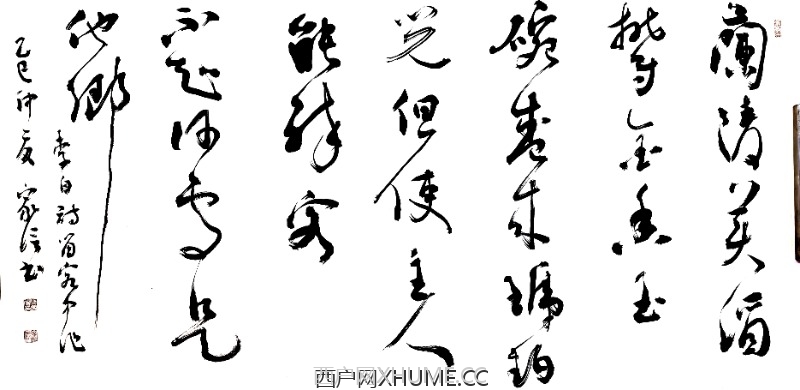 蘭陵美酒
鬱金香玉
碗盛来琥珀
光但使主人
能醉客
不知何處是
他鄉
李白詩留客中作
乙巳仲夏 家信书
西户网XHUME.CC